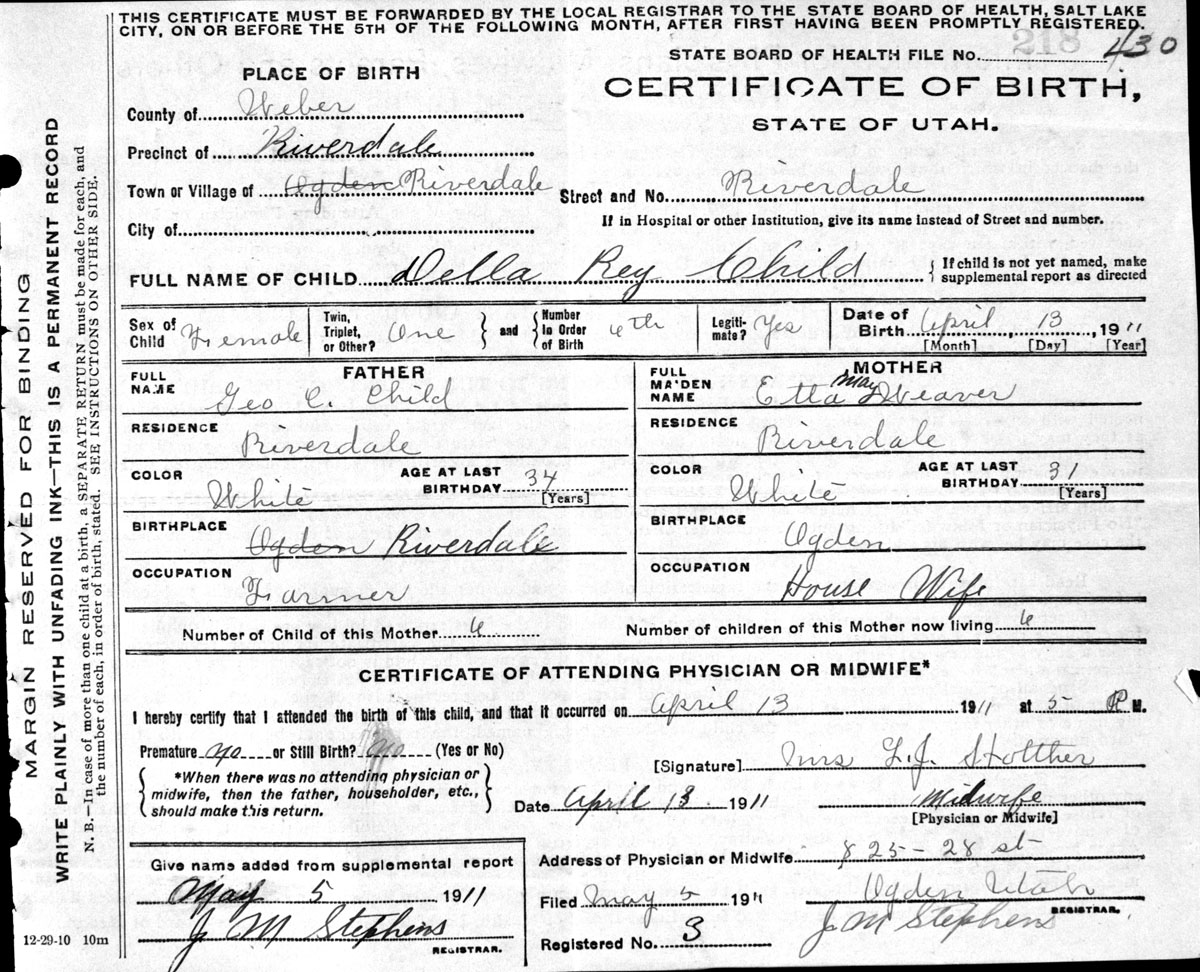 THIS CERTIFICATE MUST BE FORWARDED BY THE LOCAL REGISTRAR TO THE STATE BOARD OF HEALTH, SALT LAKE
CITY, ON OR BEFORE THE 5TH OF THE FOLLOWING MONTH, AFTER FIRST HAVING BEEN PROMPTLY REGISTERED.
218
STATE BOARD OF HEALTH FILE No. 430
PLACE OF BIRTH
CERTIFICATE OF BIRTH,
STATE OF UTAH.
County of Weber
Precinct of Riverdale
Town or Village of Ogden Riverdale Street and No. Riverdale
City of
If in Hospital or other Institution, give its name instead of Street and number.
FULL NAME OF CHILD Della Rey Child { If child is not yet named, make
supplemental report as directed
Sex of Child Female
Twin, Triplet, or Other? One } and { Number in Order of Birth 6th
Legitimate? Yes
Date of Birth April 13, 1911
[Month] [Day] [Year]
FATHER
FULL NAME Geo C. Child
RESIDENCE
Riverdale
COLOR White AGE AT LAST BIRTHDAY 34 [Years]
BIRTHPLACE
Ogden Riverdale
OCCUPATION
Farmer
MOTHER
FULL MAIDEN NAME Etta May Weaver
RESIDENCE
Riverdale
COLOR White AGE AT LAST BIRTHDAY 31 [Years]
BIRTHPLACE
Ogden
OCCUPATION
House Wife
Number of Child of this Mother 6 Number of children of this Mother now living 6
CERTIFICATE OF ATTENDING PHYSICIAN OR MIDWIFE*
I hereby certify that I attended the birth of this child, and that it occurred on April 13 1911 at 5 P M.
Premature no or Still Birth? no (Yes or No)
*When there was no attending physician or
midwife, then the father, householder, etc.,
should make this return.
[Signature] Mrs L.J. Stolther
Date April 13. 1911 Midwife
[Physician or Midwife]
Give name added from supplemental report
May 5 1911
J M Stephens
REGISTRAR.
Address of Physician or Midwife 825-28 st
Ogden Utah
Filed May 5 1911 J M Stephens
REGISTRAR.
Registered No. 3
12-29-10 10m
MARGIN RESERVED FOR BINDING
WRITE PLAINLY WITH UNFADING INK—THIS IS A PERMANENT RECORD
N. B.—In case of more than one child at a birth, a SEPARATE RETURN must be made for each, and
the number of each, in order of birth, stated. SEE INSTRUCTIONS ON OTHER SIDE.